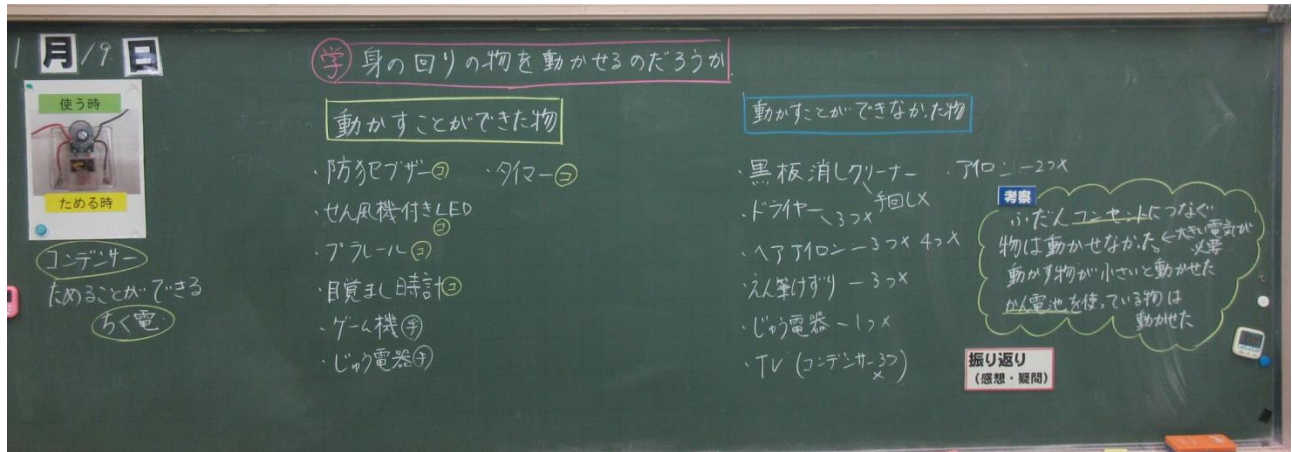 1月19日
使う時
ためる時
コンデンサー
ためることができる
ちく電
学 身の回りの物を動かせるのだろうか
動かすことができた物
・防犯ブザーコ ・タイマーコ
・せん風機付きLED
コ
・プラレールコ
・目覚まし時計コ
・ゲーム機手
・じゅう電器手
動かすことができなかった物
・黒板消しクリーナー ・アイロンー2つ×
手回し×
・ドライヤー
3つ×
・ヘアアイロンー3つ× 4つ×
・えん筆けずりー3つ×
・じゅう電器ー1つ×
・TV(コンデンサー3つ)
×
考察
ふだんコンセントにつなぐ
物は動かせなかった。←大きい電気が
必要
動かす物が小さいと動かせた
かん電池を使っている物は
動かせた
振り返り
(感想・疑問)